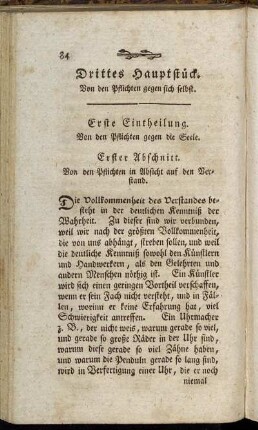 84
Drittes Hauptstück.
Von den Pflichten gegen sich selbst.
Erste Eintheilung.
Von den Pflichten gegen die Seele.
Erster Abschnitt.
Von den Pflichten in Absicht auf den Ver-
stand.
Die Vollkommenheit des Verstandes be-
steht in der deutlichen Kenntniß der
Wahrheit. Zu dieser sind wir verbunden,
weil wir nach der größten Vollkommenheit,
die von uns abhängt, streben sollen, und weil
die deutliche Kenntniß sowohl den Künstlern
und Handwerkern, als den Gelehrten und
andern Menschen nöthig ist. Ein Künstler
wird sich einen geringen Vortheil verschaffen,
wenn er sein Fach nicht versteht, und in Fäl-
len, worinn er keine Erfahrung hat, viel
Schwierigkeit antreffen. Ein Uhrmacher
z. B., der nicht weis, warum gerade so viel,
und gerade so große Räder in der Uhr sind,
warum diese gerade so viel Zähne haben,
und warum die Penduln gerade so lang sind,
wird in Verfertigung einer Uhr, die er noch
niemal